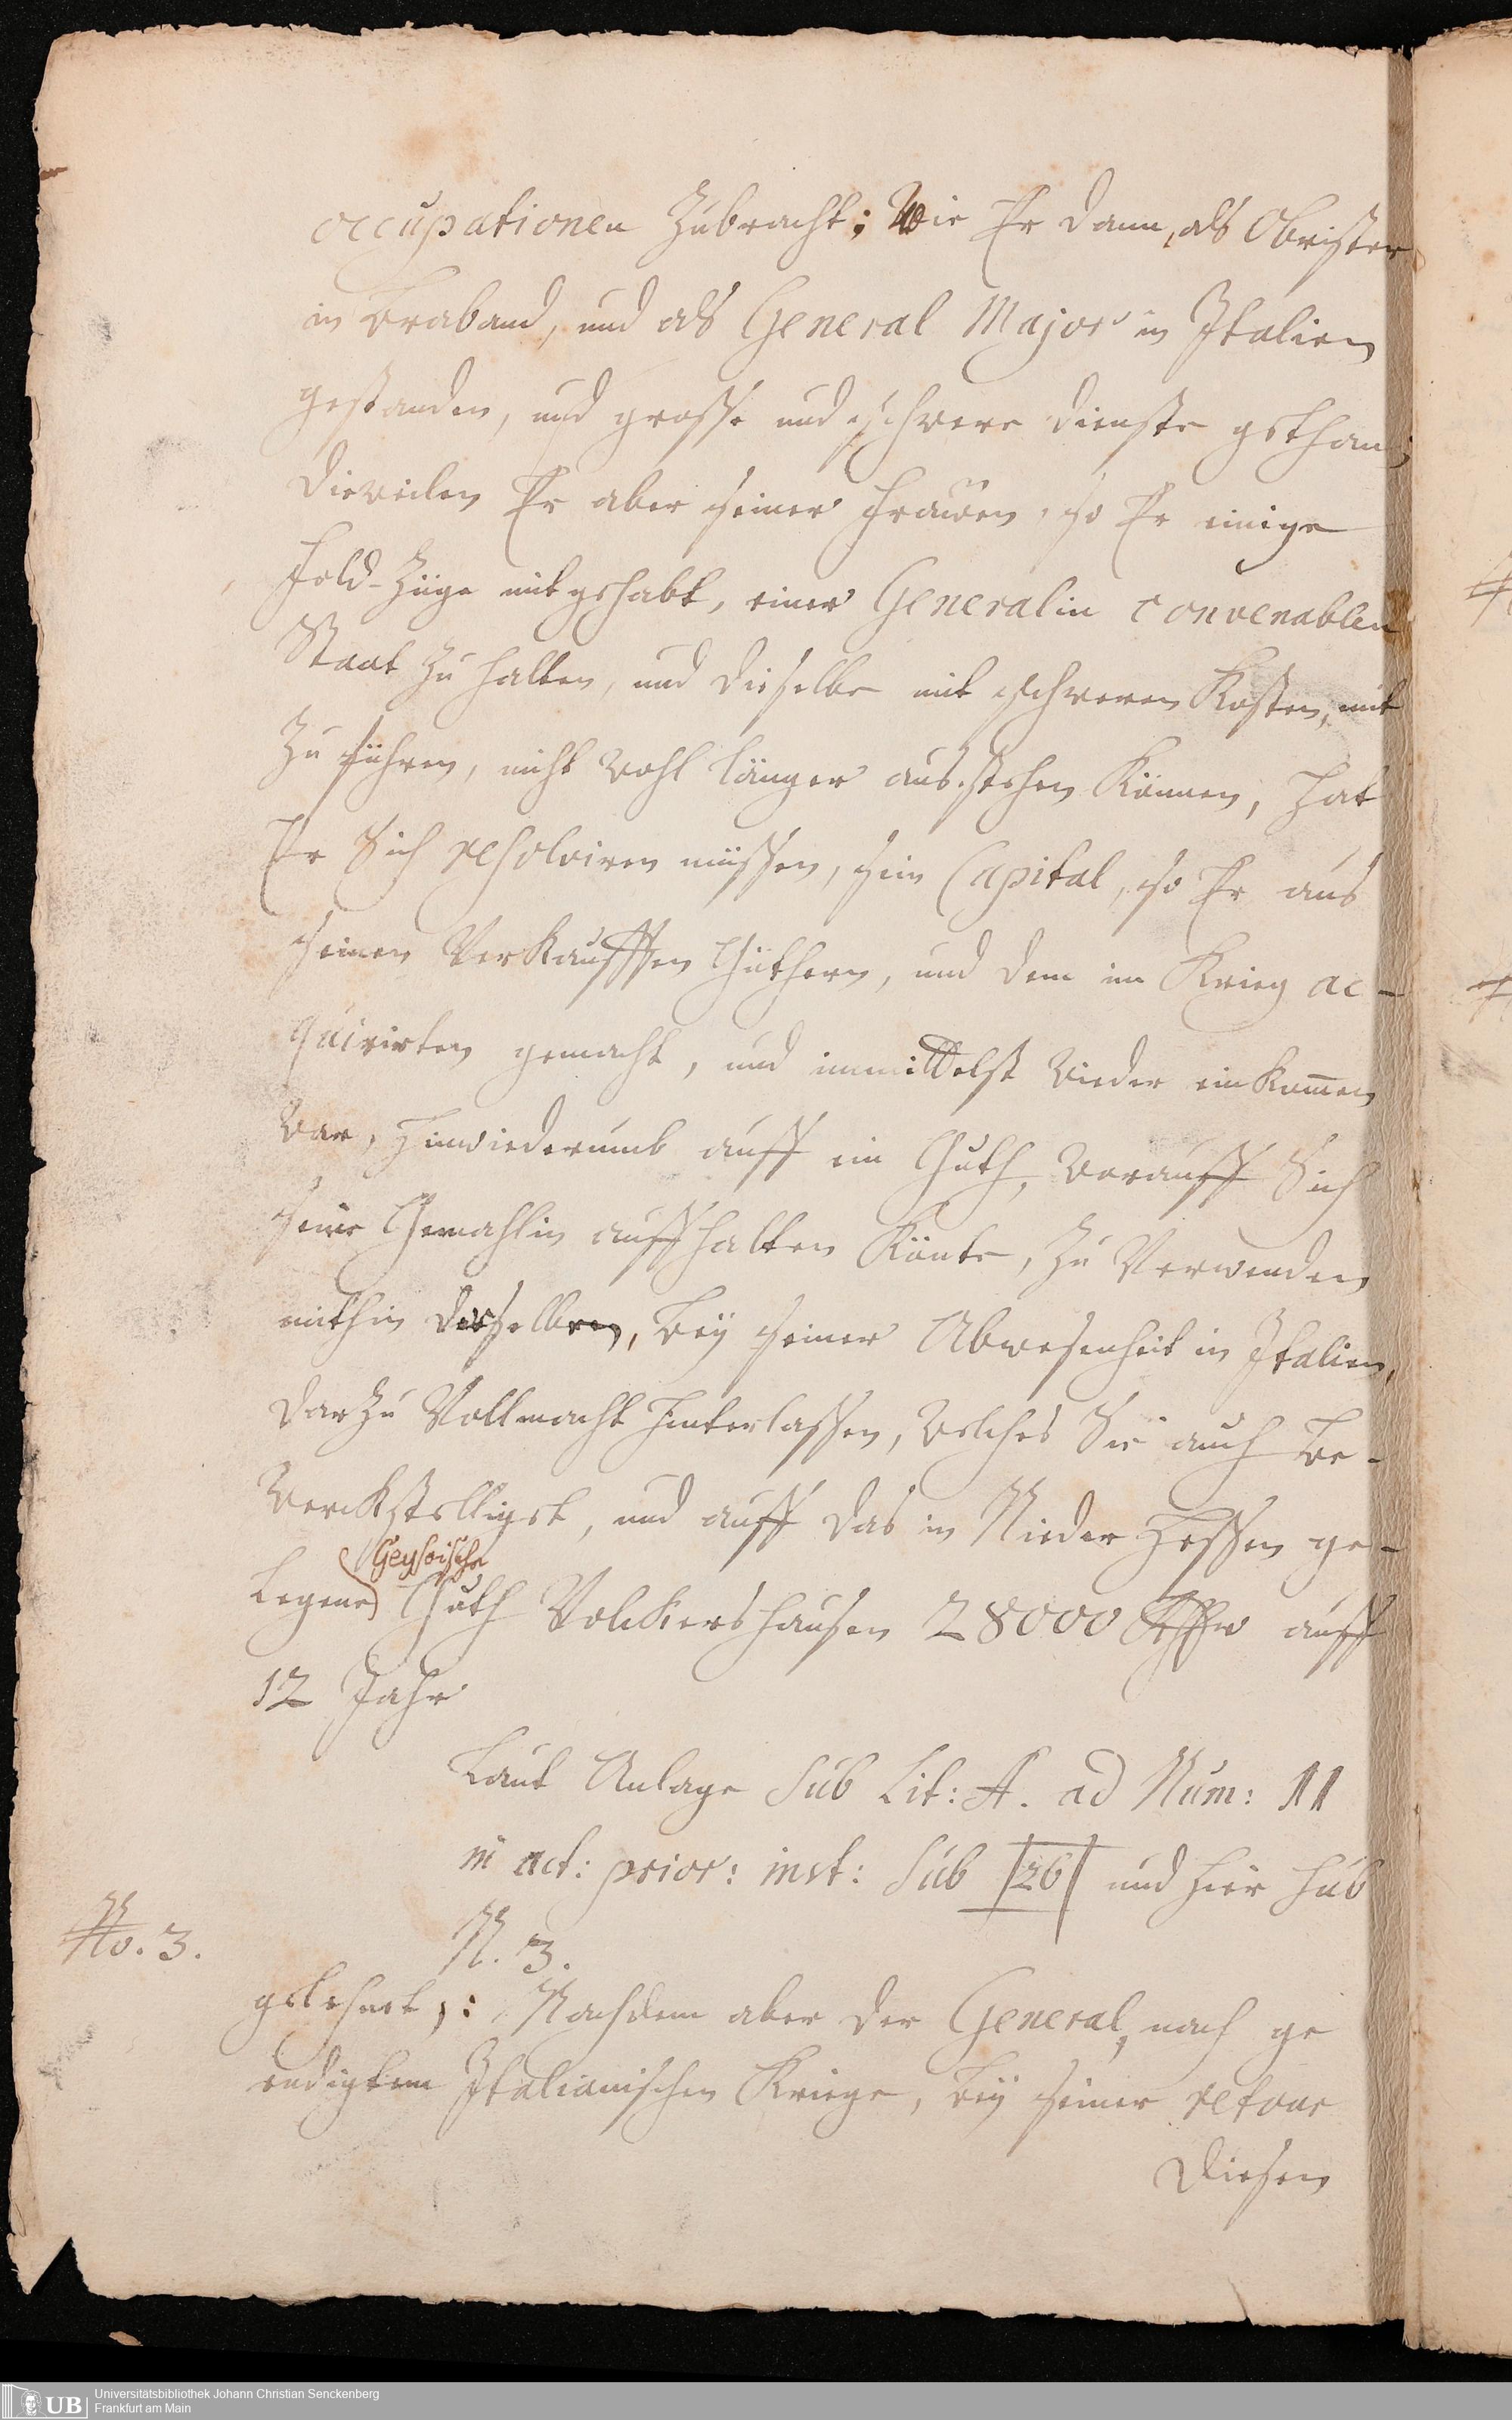 occupationen Zubracht; Wie Er dann, als Obrister
in Braband, und als General Major in Italien
gestanden, und grosse und schwere dienste gethan;
dieweilen Er aber seiner Frauen, so Er einige
Feld-Züge mitgehabt, einer Generalin convenablen
Staat zu halten, und dieselbe mit schweren Kosten, mit
Zu führen, nicht wohl länger ausstehen Können, Hat
Er Sich resolviren müssen, sein Capital, so Er aus
seinen Verkaufften Güthern, und dem im Krieg ac-
quirirten gemacht, und immittelst wieder einkom̄en
war, hinwiederumb auff ein Guth, worauff Sich
seine Gemahlin auffhalten Könte, Zu Verwenden
mithin derselben, bey seiner Abwesenheit in Italien,
darzu Vollmacht hinterlassen, welches Sie auch be-
werckstelliget, und auff das in Nieder Hessen ge-
Geysoische
legene Guth Volckershausen 28000 auff
12 Jahr
Laut Anlage sub Lit: A. ad Num: 11
in act: prior: inst: sub 26 und hier sub
No. 3.
N. 3.
gelehnet,: Nachdem aber der General, nach ge
endigtem Italianischen Kriege, bey seiner retour
diesen
UB Universitätsbibliothek Johann Christian Senckenberg
Frankfurt am Main